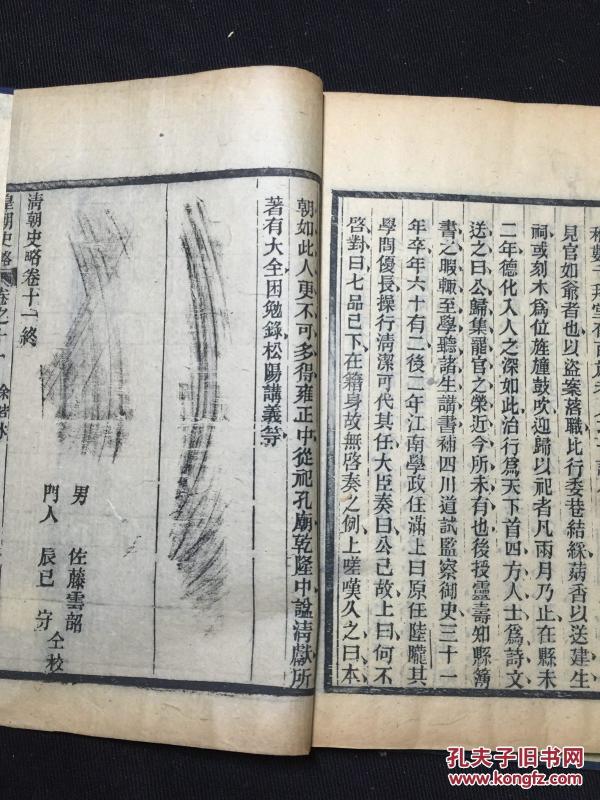 見官如爺者也以盜案落職比行委巷結綵蓺香以送建生
祠或刻木爲位旌旗鼓吹迎歸以祀者凡兩月乃止在縣未
二年德化入人之深如此治行爲天下首四方人士爲詩文
送之曰公歸集罷官之榮近今所未有也後授靈壽知縣簿
書之暇輒至學聽諸生講書補四川道試監察御史三十一
年卒年六十有二後二年江南學政任滿上曰原任陸隴其
學問優長操行清潔可代其任大臣奏曰公已故上曰何不
啓對曰七品已下在籍身故無啓奏之例上嗟嘆久之曰本
朝如此人更不可多得雍正中從祀孔廟乾隆中諡清獻所
著有大全困勉錄松陽講義等
清朝史略卷十一終
男 佐藤雲韶
門人 辰巳 守 仝校
皇朝史略 卷之十一
孔夫子旧书网
www.kongfz.com